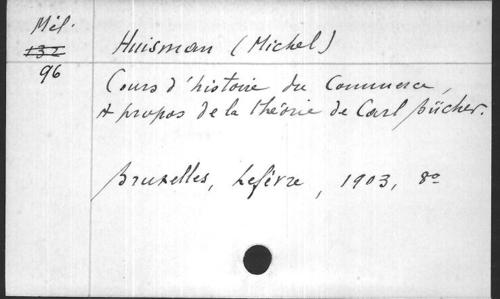 Mél.
132
96
Huisman (Michel)
Cours d'histoire du Commerce,
A propos de la théorie de Carl Bücher.
Bruxelles, Lefévre, 1903, 8º